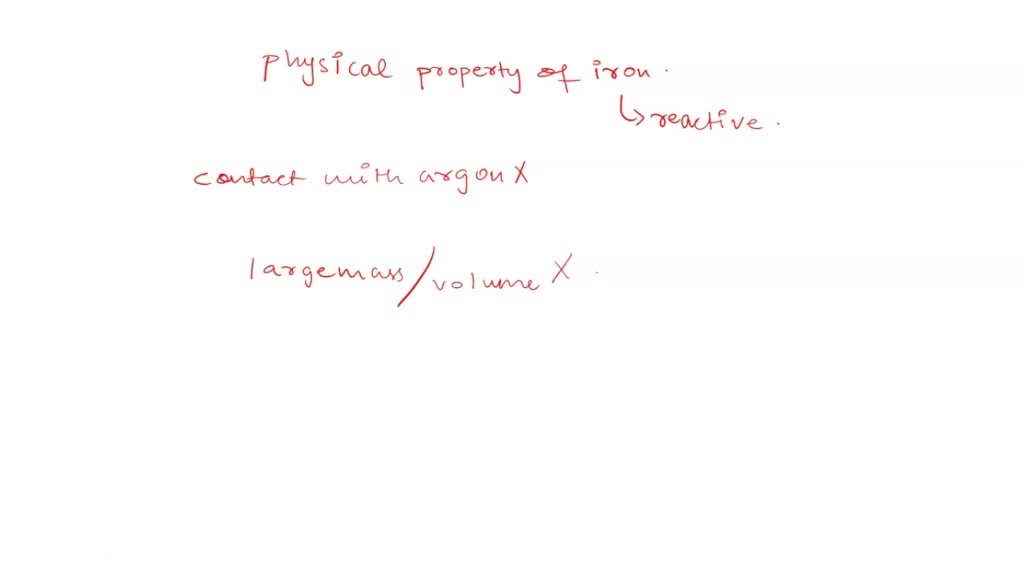 physical property of iron.
↳ reactive.
contact with argon X
large mass / volume X